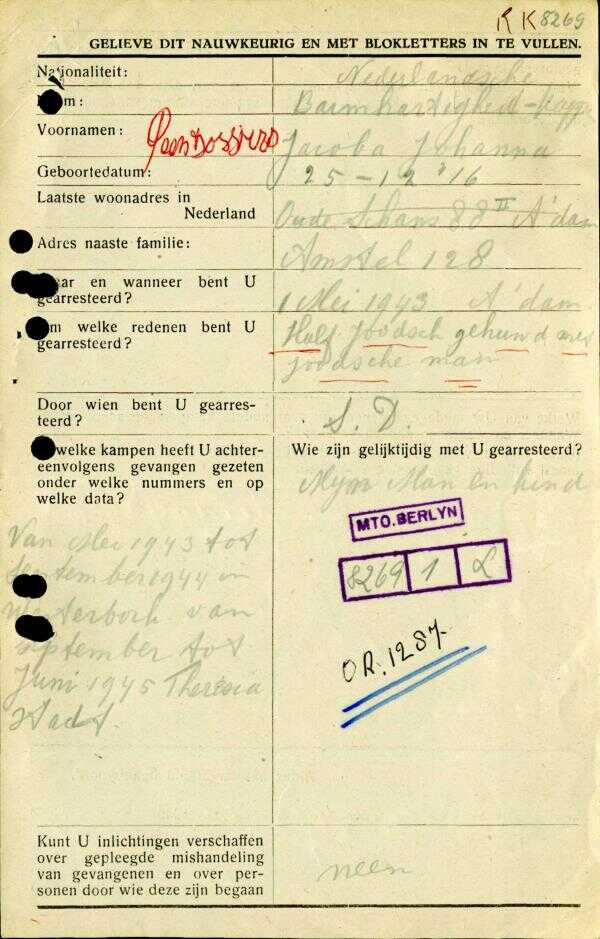 RK 8269
GELIEVE DIT NAUWKEURIG EN MET BLOKLETTERS IN TE VULLEN.
Nationaliteit: Nederlandsche
Barmhartigheid-
Voornamen: Jacoba Johanna
Geen Dossiers
Geboortedatum: 25-12 '16
Laatste woonadres in
Nederland Oude Schans 88 II A'dam
Adres naaste familie: Amstel 128
en wanneer bent U
gearresteerd? 1 Mei 1943 A'dam
welke redenen bent U Half Joodsch gehuwd met
gearresteerd? joodsche man
Door wien bent U gearres-
teerd? S.D.
welke kampen heeft U achter-
eenvolgens gevangen gezeten
onder welke nummers en op
welke data?
Van Mei 1943 tot
September 1944 in
Westerbork van
september tot
Juni 1945 Theresia
stadt.
Wie zijn gelijktijdig met U gearresteerd?
Mijn Man en kind
MTO. BERLYN
8269 1 L
OR. 1287.
Kunt U inlichtingen verschaffen
over gepleegde mishandeling
van gevangenen en over per-
sonen door wie deze zijn begaan
neen